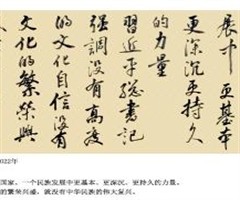 展中更基本
更深沉更持久
的力量
習近平總書記
強調没有高度
的文化自信没有
文化的繁榮興
022年
国家、一个民族发展中更基本、更深沉、更持久的力量。
的繁荣兴盛，就没有中华民族的伟大复兴。